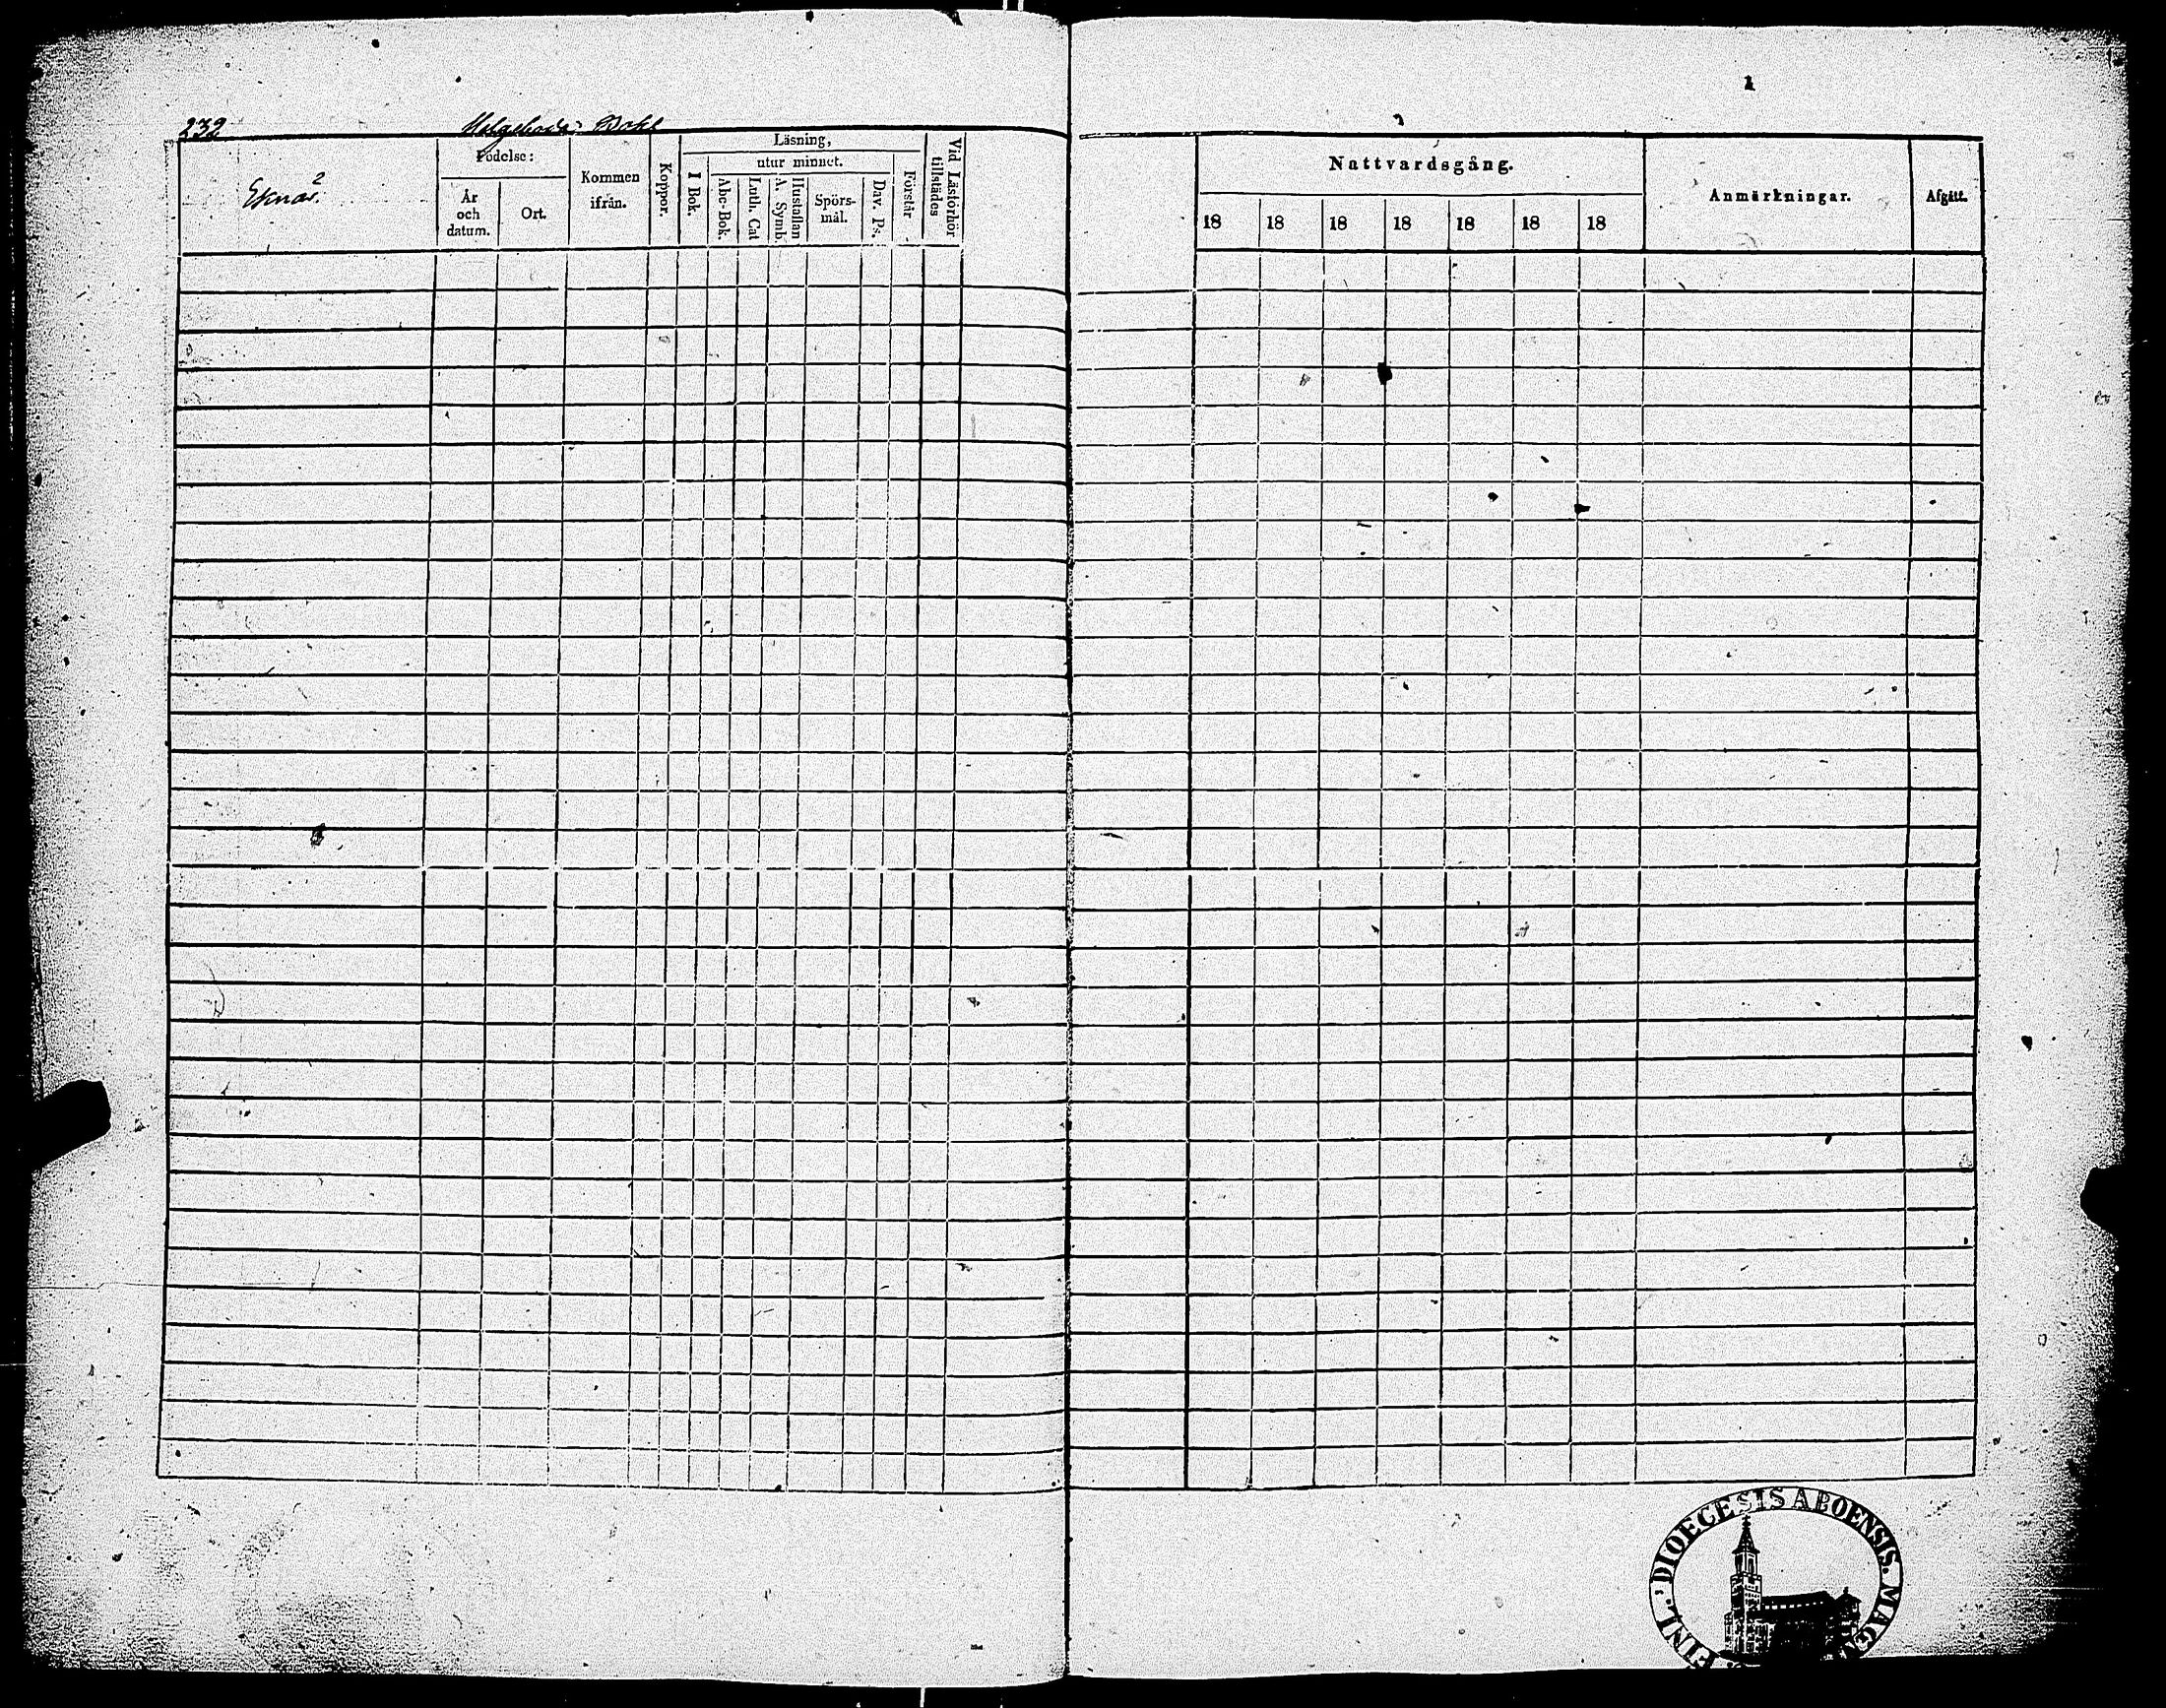 232 Helgeboda Bohl
Eknäs 2
Födelse:
År och datum.
Ort.
Kommen ifrån.
Koppor.
Läsning,
I Bok.
utur minnet.
Abc-Bok.
Luth. Cat
A. Symb.
Hustaflan
Spörs-mål.
Dav. Ps.
Förstår
Vid Läsförhör tillstädes
Nattvardsgång.
18 18 18 18 18 18 18
Anmärkningar.
Afgått.
DIOECESIS ABOENSIS. MAG
FINL.